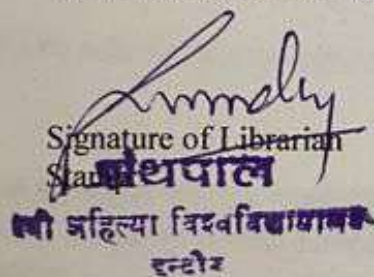 Signature of Librarian
Stamp
ग्रंथपाल
देवी अहिल्या विश्वविद्यालय
इन्दौर